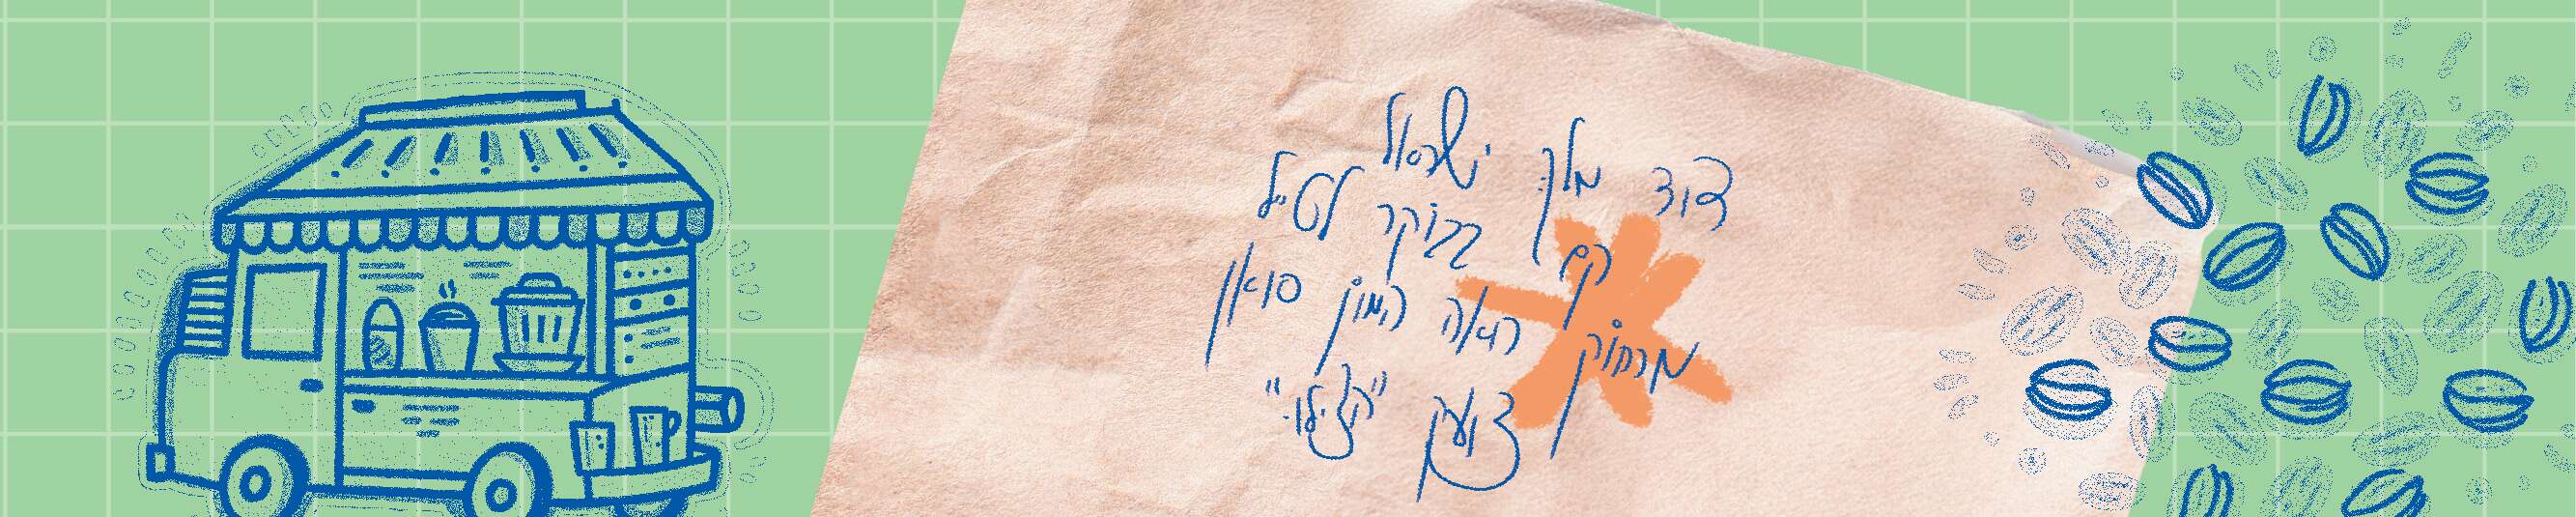 דוד מלך ישראל
קם בבוקר לטייל
מרחוק רואה המון סואן
צועק "הצילו"